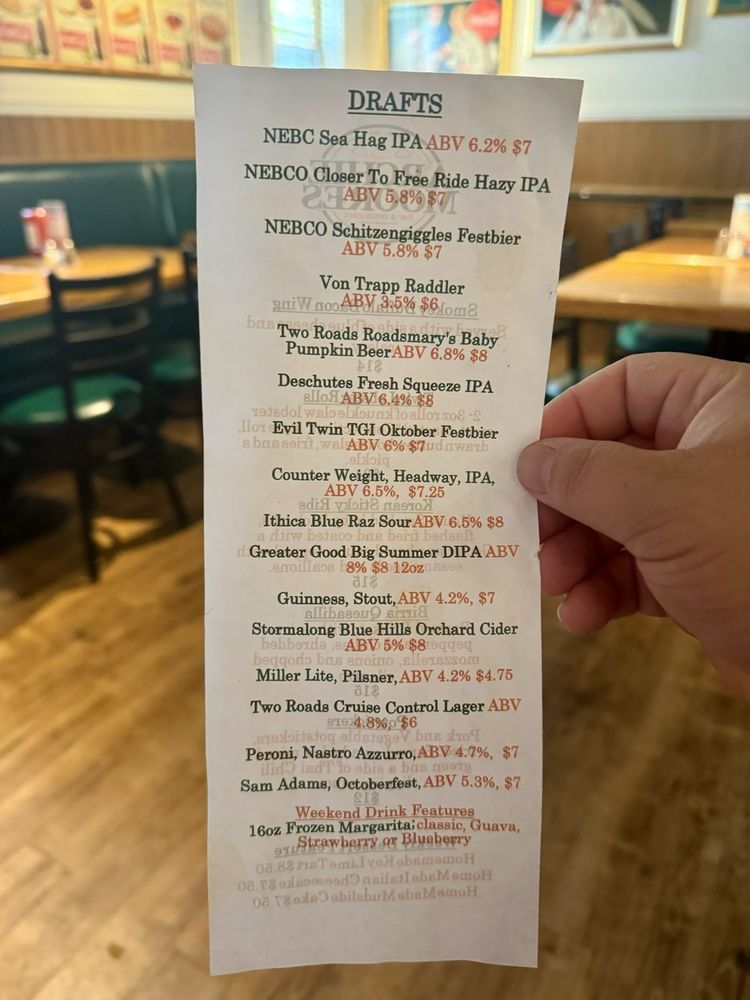 DRAFTS
NEBC Sea Hag IPA ABV 6.2% $7
NEBCO Closer To Free Ride Hazy IPA
ABV 5.8% $7
NEBCO Schitzengiggles Festbier
ABV 5.8% $7
Von Trapp Raddler
ABV 3.5% $6
Two Roads Roadsmary's Baby
Pumpkin Beer ABV 6.8% $8
Deschutes Fresh Squeeze IPA
ABV 6.4% $8
Evil Twin TGI Oktober Festbier
ABV 6% $7
Counter Weight, Headway, IPA,
ABV 6.5%, $7.25
Ithica Blue Raz Sour ABV 6.5% $8
Greater Good Big Summer DIPA ABV
8% $8 12oz
Guinness, Stout, ABV 4.2%, $7
Stormalong Blue Hills Orchard Cider
ABV 5% $8
Miller Lite, Pilsner, ABV 4.2% $4.75
Two Roads Cruise Control Lager ABV
4.8%, $6
Peroni, Nastro Azzurro, ABV 4.7%, $7
Sam Adams, Octoberfest, ABV 5.3%, $7
Weekend Drink Features
16oz Frozen Margarita; classic, Guava,
Strawberry or Blueberry
Homemade Key Lime Tart $8.50
Home Made Italian Cheesecake $7.50
Home Made Mudslide Cake $7.50